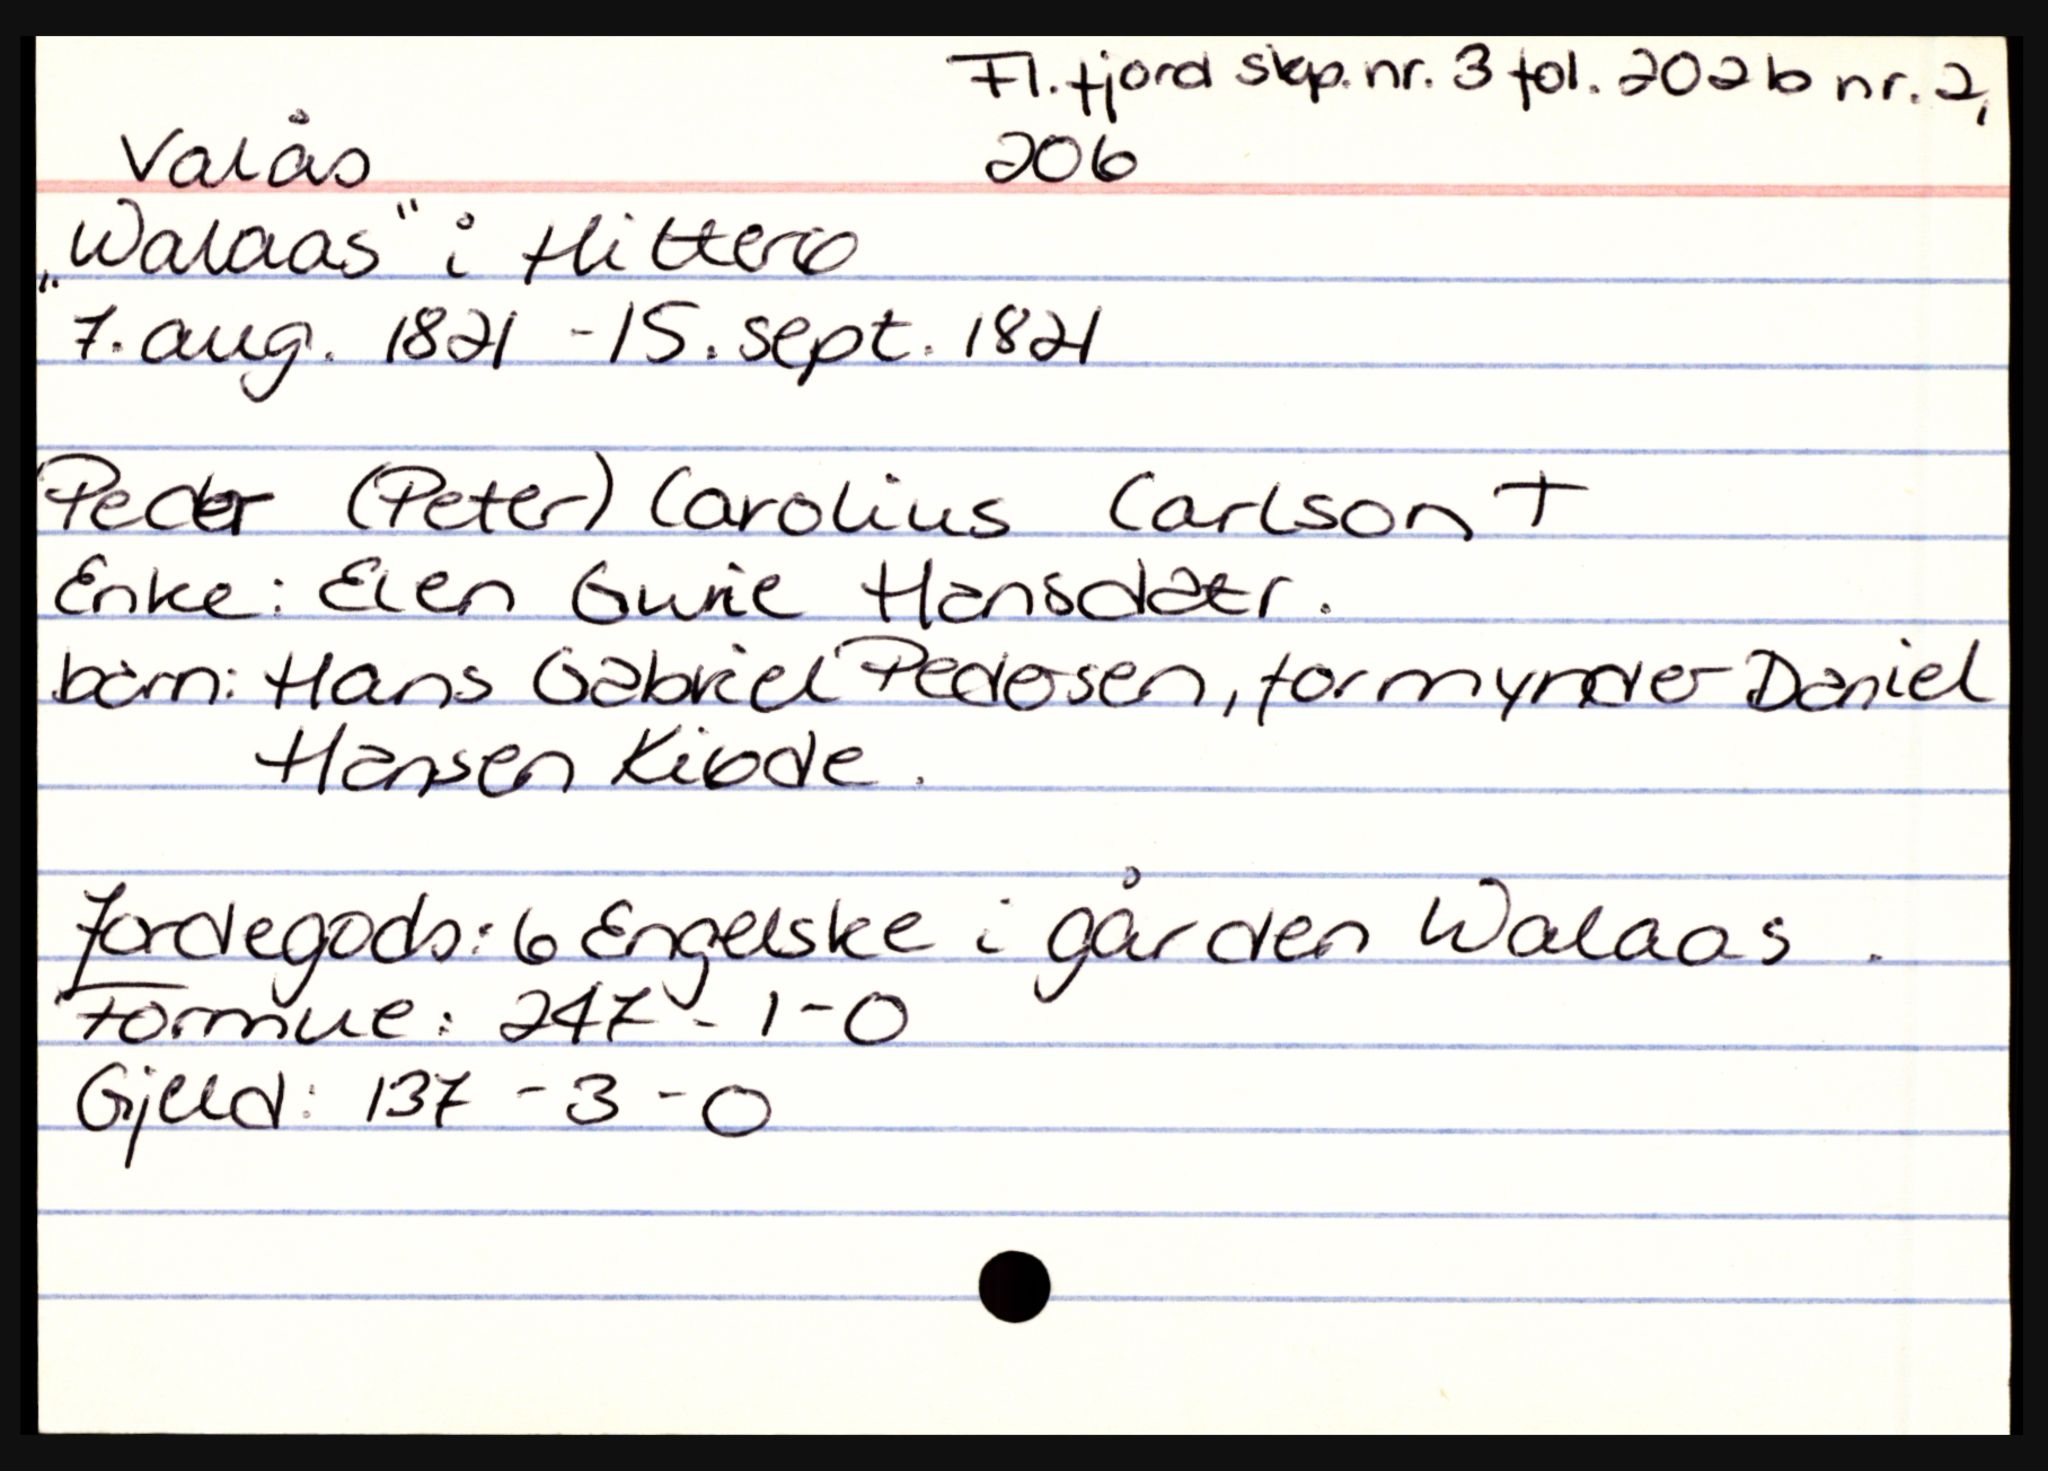 Fl.fjord skp.nr. 3 fol. 202b nr. 2,
Valås 206
„Walaas" i Hitterø
7. aug. 1821 - 15. sept. 1821
Peder (Peter) Carolius Carlson +
Enke: Elen Gurie Hansdatr.
barn: Hans Gabriel Pedersen, formynder Daniel
Hansen Kiøde.
Jordegods: 6 Engelske i gården Walaas.
Formue: 247 - 1 - 0
Gjeld: 137 - 3 - 0